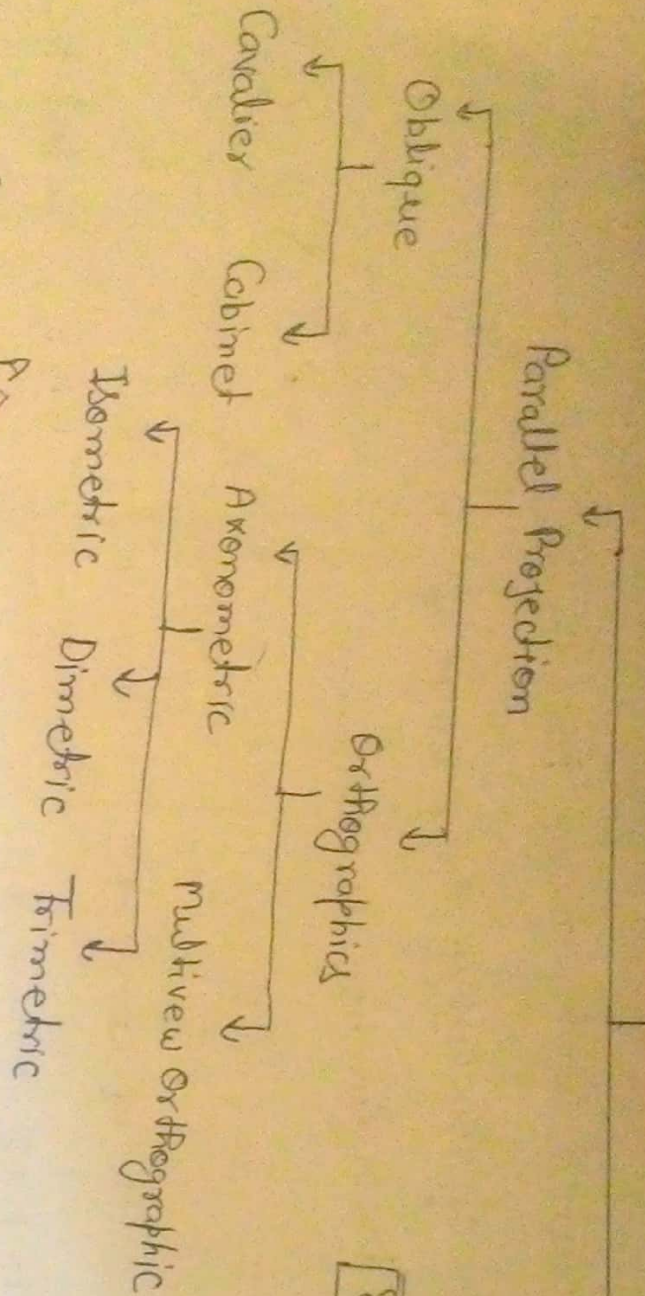 Parallel Projection
Oblique
Orthographics
Cavalier
Cabinet
Axonometric
Multivew Orthographic
Isometric
Dimetric
Trimetric